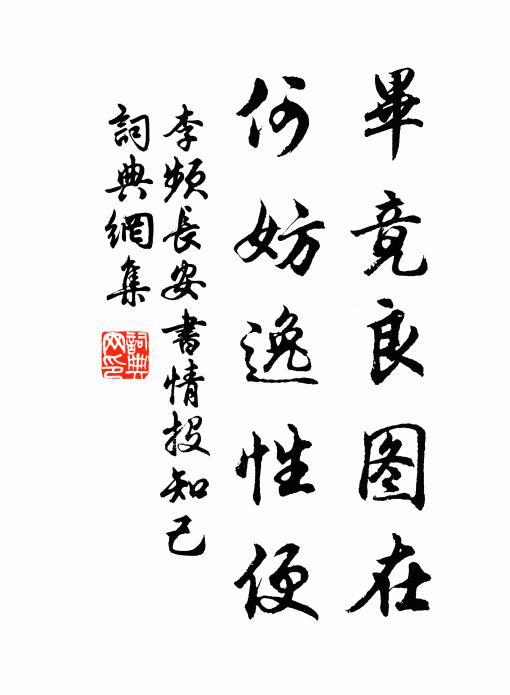 畢竟良图在
何妨逸性便
李频長安書情投知己
詞典網集
詞典網印